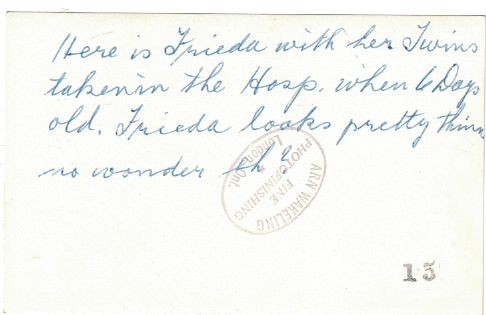 Here is Frieda with her Twins
taken in the Hosp. when 6 Days
old. Frieda looks pretty thin
no wonder eh?
ARN WAKELING
FINE
PHOTOFINISHING
London, Ont.
15